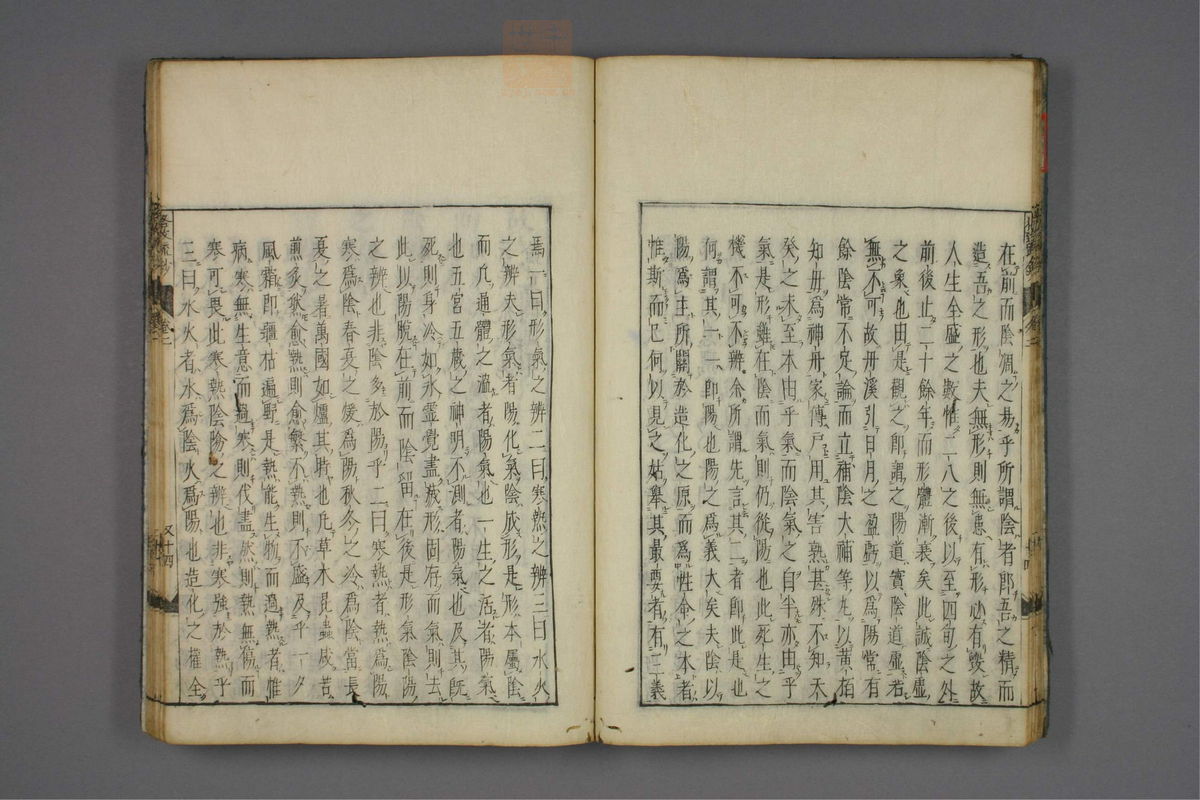 在前而陰凋之易乎所謂陰者即吾之精而
造吾之形也夫無形則無患有形必有變故
人生全盛之數惟二八之後以至四旬之外
前後止二十餘年而形體漸衰矣此誠陰虛
之象也由是觀之即謂之陽道實陰道虛若
無不可故丹溪引日月之盈虧以爲陽常有
餘陰常不足論而立補陰大補等丸以黄栢
知母爲神丹家傳戸用其害孰甚殊不知天
癸之未至本由乎氣而陰氣之自半亦由乎
氣是形雖在陰而氣則仍從陽也此死生之
機不可不辨余所謂先言其二者即此是也
何謂其一一即陽也陽之爲義大矣夫陰以
陽爲主所關於造化之原而爲性命之本者
惟斯而已何以見之姑舉其最要者有三義
焉一曰形氣之辨二曰寒熱之辨三曰水火
之辨夫形氣者陽化氣陰成形是形本屬陰
而凡通體之溫者陽氣也一生之活者陽氣
也五官五藏之神明不測者陽氣也及其既
死則身冷如氷靈覺盡滅形固存而氣則去
此以陽脫在前而陰留在後是形氣陰陽
之辨也非陰多於陽乎二曰寒熱者熱爲陽
寒爲陰春夏之煖爲陽秋冬之冷爲陰當長
夏之暑萬國如爐其時也凡草木昆蟲咸苦
煎炙然愈熱則愈繁不熱則不盛及乎一夕
風霜即殭枯遍野是熱能生物而過熱者惟
病寒無生意而過寒則伐盡然則熱無傷而
寒可畏此寒熱陰陽之辨也非寒強於熱乎
三曰水火者水爲陰火爲陽也造化之權全